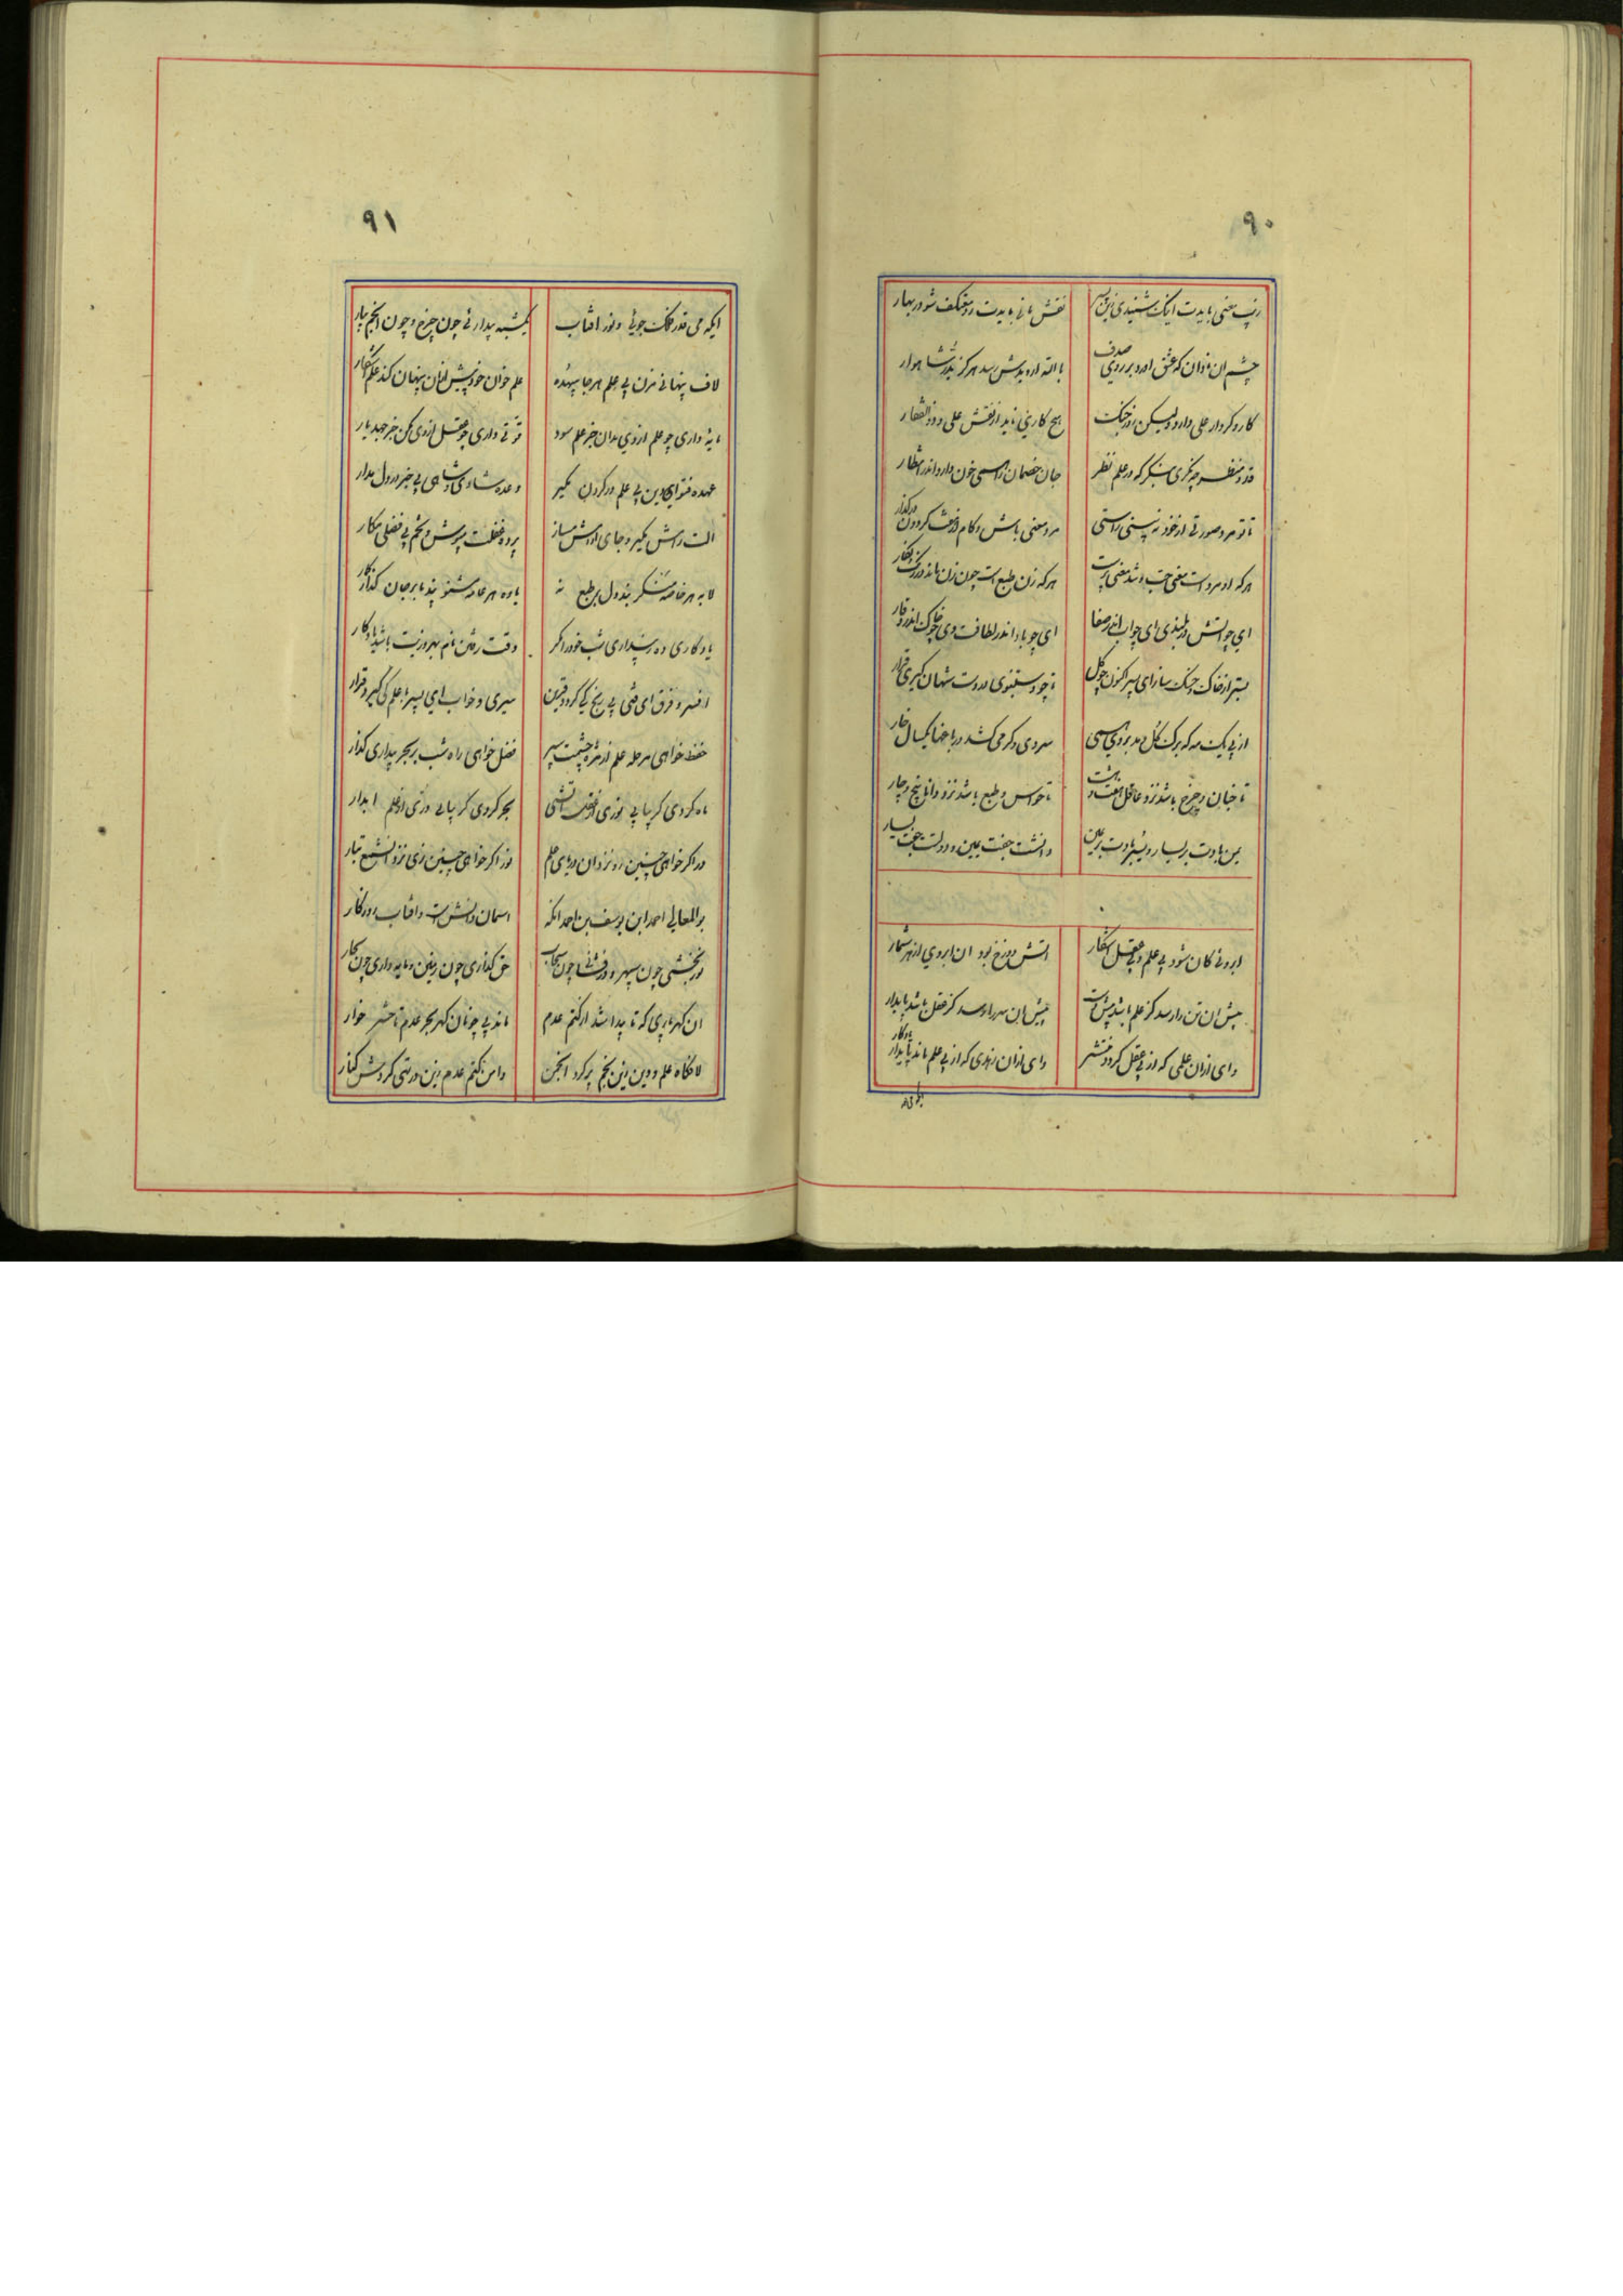 ۹۰
زیب معنی بایدت اینک شنیدی زین پسر
نقش مانی بایدت رو معتکف شو در بهار
چشم آن نادان که عشق آورد بر روی صدف
بالله ار دیدش رسد هرگز بدر شاهوار
کار و کردار علی دارد ولیکن روز جنگ
هیچ کاری ناید از نقش علی و ذوالفقار
قد و منظر چه نگری بنگر که در علم نظر
جان خصمان را همی خون دارد اندر انتظار
تا تو مرد صورتی از خود نه بینی راستی
مرد معنی باش و کام از هفت گردون درگذار
هرکه او مرد است معنی جست و شد معنی پرست
هرکه زن طبع است چون زن ماند در رنگ و نگار
ای چو آتش در بلندی ای چو آب اندر صفا
ای چو باد اندر لطافت وی چو خاک اندر وقار
بستر از خاک و خشک ساز ای پسر اکنون چو گل
تا چو دستنبوی در دست شهان گیری قرار
از پی یک مه که برگ گل دمد بر وی همی
سر دی و گرمی کشد در باغها یکسال خار
تا جنان و چرخ باشد نزد عاقل هفت و هشت
تا حواس و طبع باشد نزد دانا پنج و چار
یمن بادت بر یسار و یسر بادت بر یمین
دانشت جفت یمین و دولتت جفت یسار
ابروئی کان شود بی علم و بی عقل آشکار
آتش دوزخ بود آن ابروی از هر شمار
پیش آن تن را رسد کز علم باشد پیش دست
پیش آن سر را رسد کز عقل باشد پایدار
وای ازان علمی که از بی عقل گردد منتشر
وای ازان زهدی که از بی علم ماند پایدار
یادگار
۹۱
ایکه می قدر فلک جوئی و نور آفتاب
یکشبه بیدار نی چون چرخ و چون انجم بیار
لاف پنهانی مزن بی علم هر جا بیهده
علم خوان خود پیش ازان پنهان کند علم آشکار
مایه داری چو علم ازوی مدان جز علم سود
قوتی داری چو عقل ازوی مکن جز جهد یار
عهده فتوای دین بی علم در گردن مگیر
وعده شادی و شاهی بی خبر در دل مدار
آلت رامش مگیر و جای آرامش مساز
پرده غفلت مپوش و تخم بی فضلی مکار
لابه هر خاصه منگر بند دل بر طبع نه
یاوه هر عامه مشنو پند ما بر جان گذار
یادگاری ده ز بیداری شب خود را اگر
وقت رفتن نام بهروزیت باشد یادگار
افسر و فرق ای فتی بی رنج کی گردد قرین
سیری و خواب ای پسر با علم کی گیرد قرار
حفظ خواهی مرحله علم از مژه چشمت سپر
فضل خواهی راه شب بر بحر بیداری گذار
ماه گردی گر بیابی نوری از عفت شبی
بحر گردی گر بیابی دری از علم آبدار
در اگر خواهی چنین رو نزد آن دریای علم
نور اگر خواهی چنین زی نزد آن شمع تبار
بوالمعالی احمد ابن یوسف بن احمد آنکه
آسمان دانش است و آفتاب روزگار
نور بخشی چون سپهر و در فشانی چون سحاب
حق گذاری چون زمین و مایه داری چون بحار
آن گهرباری که تا پیدا شد از کتم عدم
ماند بی چو نان گهر بحر عدم تا حشر خوار
لافگاه علم و دین زین نجم پر کرد انجمن
دامن کتم عدم زین در تهی کردش کنار